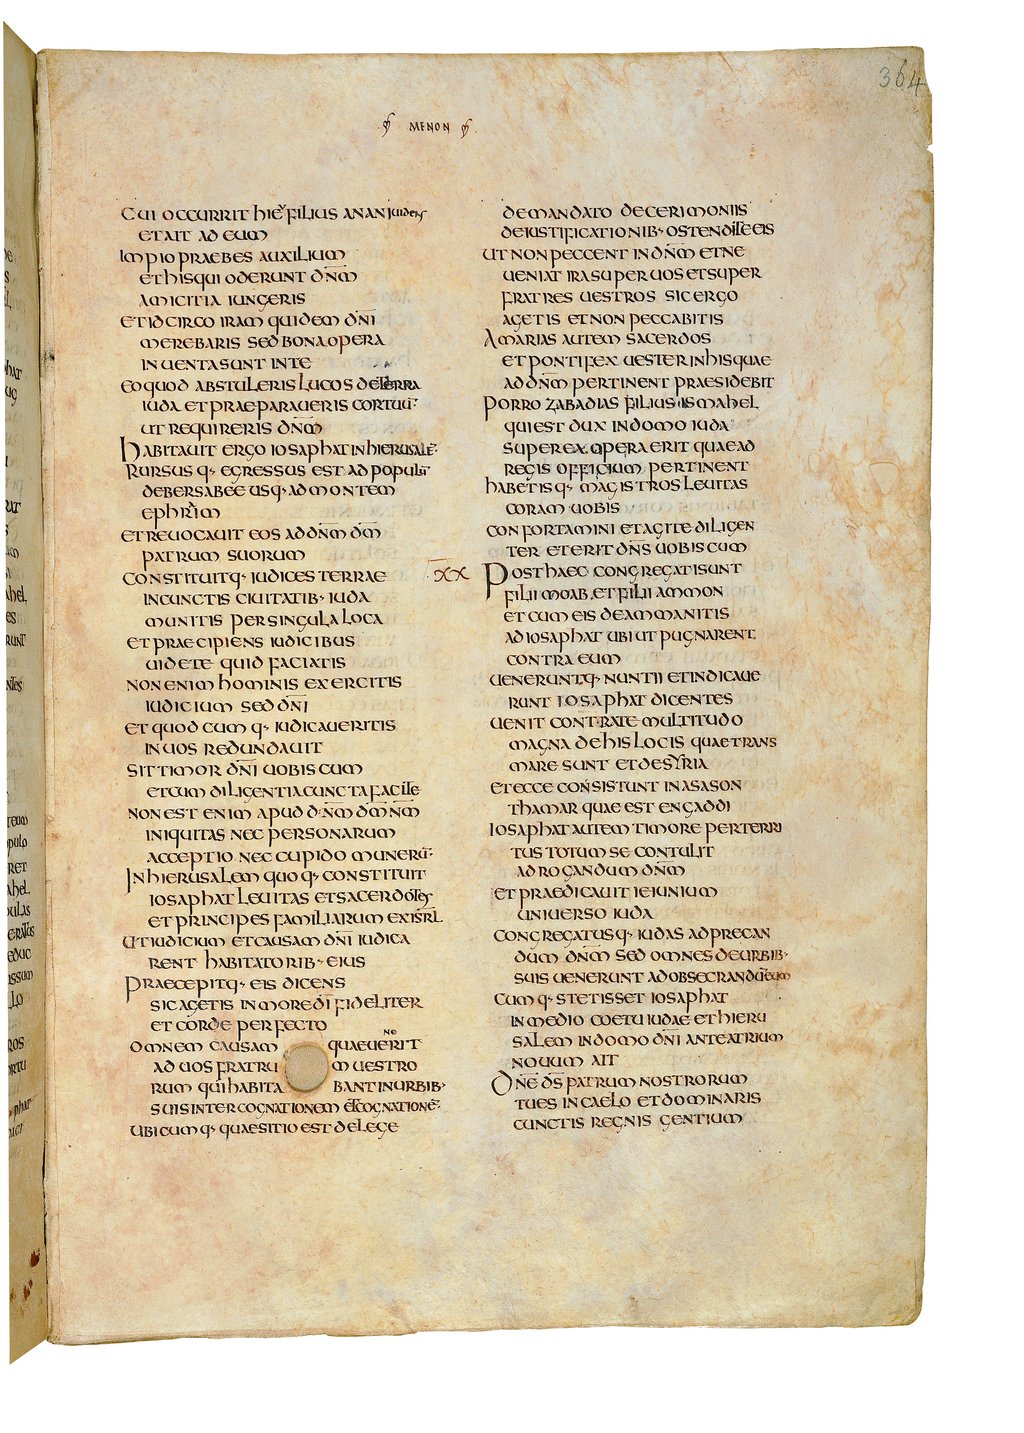 364
MENON
CUI OCCURRIT hIEu FILIUS ANANI uidens
ET AIT AD EUM
IMPIO PRAEBES AUXILIUM
ET hIS QUI ODERUNT DN̄M
AMICITIA IUNGERIS
ET IDCIRCO IRAM QUIDEM DN̄I
MEREBARIS SED BONA OPERA
INUENTA SUNT IN TE
EO QUOD ABSTULERIS LUCOS DE TERRA
IUDA ET PRAEPARAUERIS COR TUŪ·
UT REQUIRERIS DN̄M
hABITAUIT ERGO IOSAPhAT IN hIERUSALĒ·
RURSUS Q· EGRESSUS EST AD POPULŪ
DE BERSABEE USQ· AD MONTEM
EPhRĪM
ET REUOCAUIT EOS AD DN̄M DM̄
PATRUM SUORUM
CONSTITUITQ· IUDICES TERRAE
IN CUNCTIS CIUITATIB· IUDA
MUNITIS PER SINGULA LOCA
ET PRAECIPIENS IUDICIBUS
UIDETE QUID FACIATIS
NON ENIM hOMINIS EXERCITIS
IUDICIUM SED DN̄I
ET QUODCUMQ· IUDICAUERITIS
IN UOS REDUNDAUIT
SIT TIMOR DN̄I UOBISCUM
ET CUM DILIGENTIA CUNCTA FACITE
NON EST ENIM APUD DN̄M DM̄ NM̄
INIQUITAS NEC PERSONARUM
ACCEPTIO NEC CUPIDO MUNERŪ·
IN hIERUSALEM QUOQ· CONSTITUIT
IOSAPhAT LEUITAS ET SACERDOTES
ET PRINCIPES FAMILIARUM EX ISRL̄
UT IUDICIUM ET CAUSAM DN̄I IUDICA
RENT hABITATORIB· EIUS
PRAECEPITQ· EIS DICENS
SIC AGETIS IN MORE DĪ FIDELITER
ET CORDE PERFECTO
OMNEM CAUSAM QUAE UENERIT
AD UOS FRATRUM UESTRO
RUM QUI hABITABANT IN URBIB·
SUIS INTER COGNATIONEM ET COGNATIONĒ·
UBICUMQ· QUAESITIO EST DE LEGE
DE MANDATO DE CERIMONIIS
DE IUSTIFICATIONIB· OSTENDITE EIS
UT NON PECCENT IN DN̄M ET NE
UENIAT IRA SUPER UOS ET SUPER
FRATRES UESTROS SIC ERGO
AGETIS ET NON PECCABITIS
AMARIAS AUTEM SACERDOS
ET PONTIFEX UESTER IN hIS QUAE
AD DN̄M PERTINENT PRAESIDEBIT
PORRO ZABADIAS FILIUS ISMAhEL
QUI EST DUX IN DOMO IUDA
SUPER EA OPERA ERIT QUAE AD
REGIS OFFICIUM PERTINENT
hABETISQ· MAGISTROS LEUITAS
CORAM UOBIS
CONFORTAMINI ET AGITE DILIGEN
TER ET ERIT DN̄S UOBISCUM
XX POST hAEC CONGREGATI SUNT
FILII MOAB ET FILII AMMON
ET CUM EIS DE AMMANITIS
AD IOSAPhAT UBI UT PUGNARENT
CONTRA EUM
UENERUNTQ· NUNTII ET INDICAUE
RUNT IOSAPhAT DICENTES
UENIT CONTRA TE MULTITUDO
MAGNA DE hIS LOCIS QUAE TRANS
MARE SUNT ET DE SYRIA
ET ECCE CONSISTUNT IN ASASON
ThAMAR QUAE EST ENGADDI
IOSAPhAT AUTEM TIMORE PERTERRI
TUS TOTUM SE CONTULIT
AD ROGANDUM DN̄M
ET PRAEDICAUIT IEIUNIUM
UNIUERSO IUDA
CONGREGATUSQ· IUDAS AD PRECAN
DUM DN̄M SED OMNES DE URBIB·
SUIS UENERUNT AD OBSECRANDUM EUM
CUMQ· STETISSET IOSAPhAT
IN MEDIO COETU IUDAE ET hIERU
SALEM IN DOMO DN̄I ANTE ATRIUM
NOUUM AIT
DN̄E DS̄ PATRUM NOSTRORUM
TU ES IN CAELO ET DOMINARIS
CUNCTIS REGNIS GENTIUM